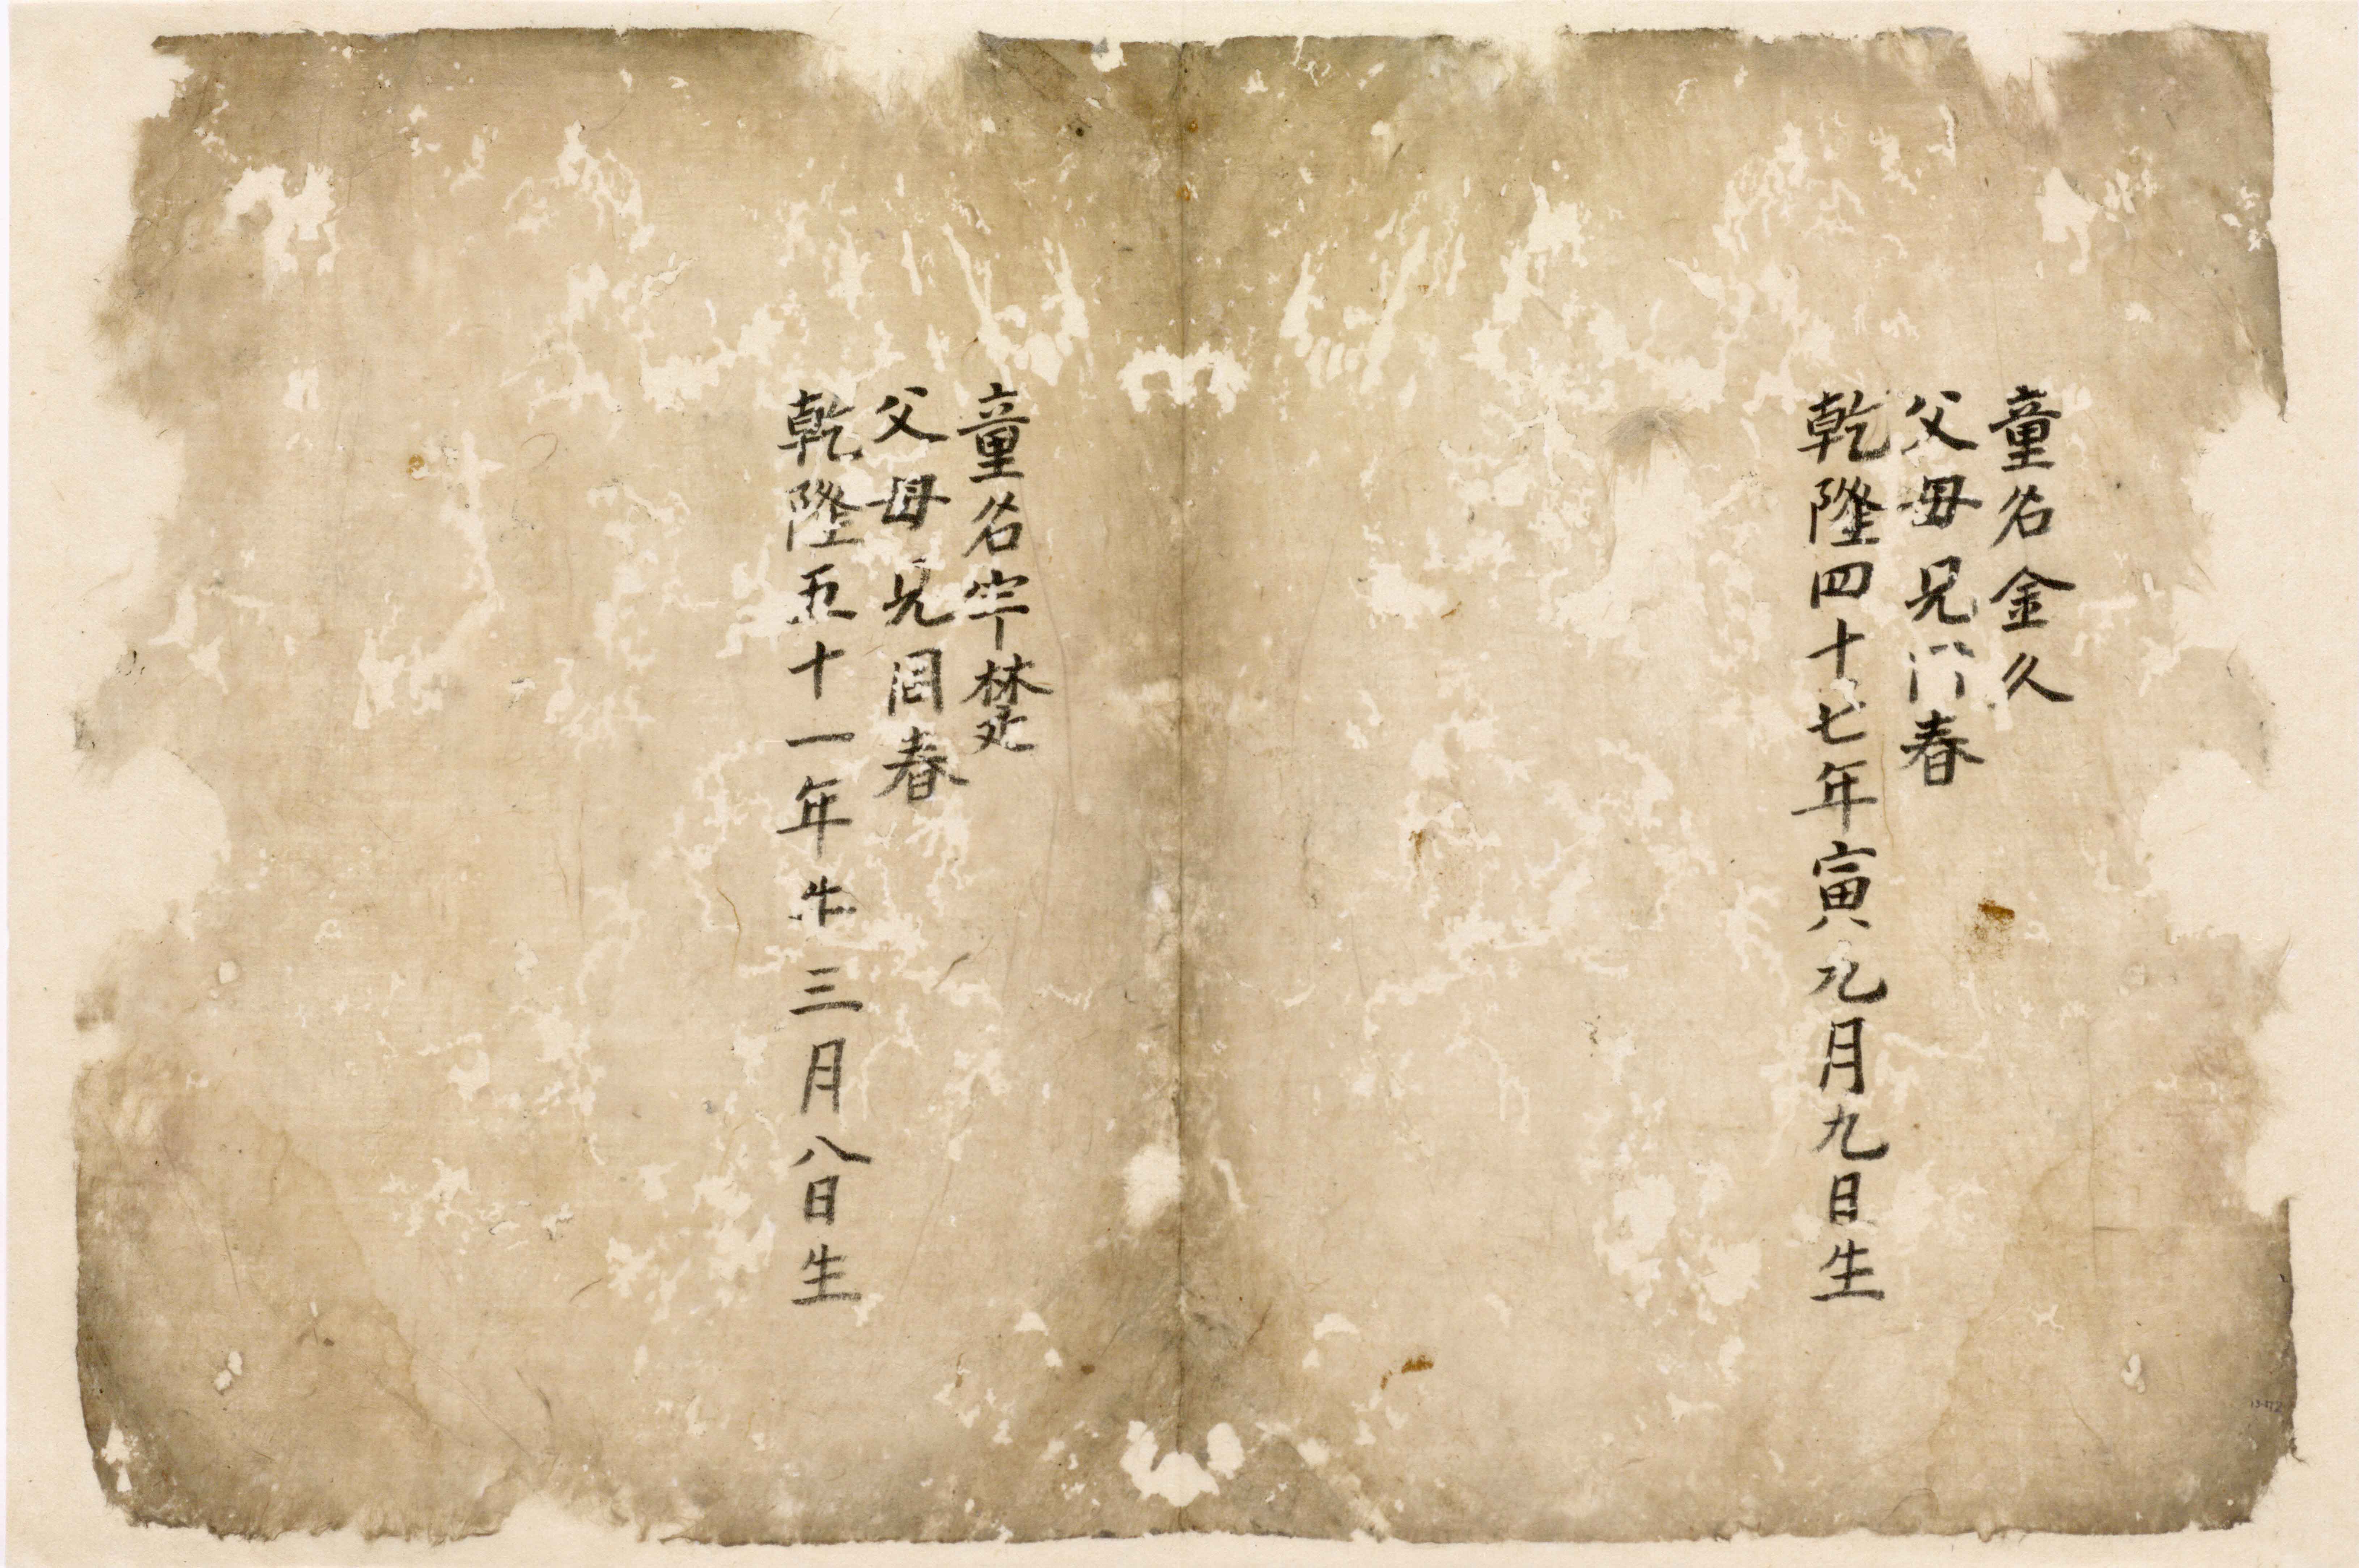 童名金久
父母兄 春
乾隆四十七年寅九月九日生
童名 樊
父母兄 春
乾隆五十一年 三月八日生